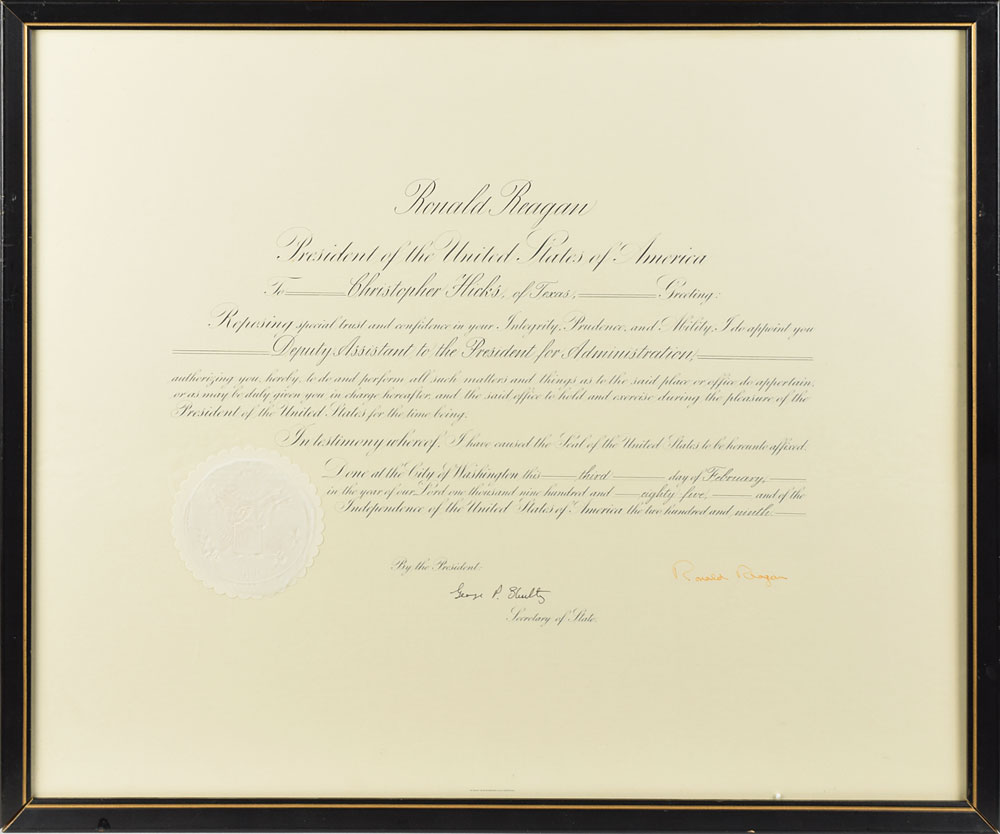 Ronald Reagan
President of the United States of America
To Christopher Hicks, of Texas, Greeting:
Reposing special trust and confidence in your Integrity, Prudence, and Ability, I do appoint you
Deputy Assistant to the President for Administration,
authorizing you, hereby, to do and perform all such matters and things as to the said place or office do appertain,
or as may be duly given you in charge hereafter, and the said office to hold and exercise during the pleasure of the
President of the United States for the time being.
In testimony whereof, I have caused the Seal of the United States to be hereunto affixed.
Done at the City of Washington this third day of February,
in the year of our Lord one thousand nine hundred and eighty five, and of the
Independence of the United States of America the two hundred and ninth.
By the President:
Ronald Reagan
George P. Shultz
Secretary of State.